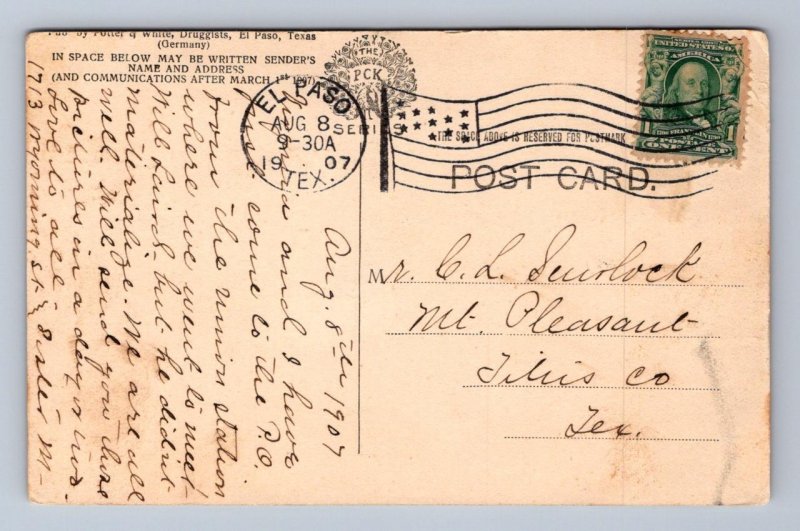 Pub. by Potter & White, Druggists, El Paso, Texas
(Germany)
IN SPACE BELOW MAY BE WRITTEN SENDER'S
NAME AND ADDRESS
(AND COMMUNICATIONS AFTER MARCH 1st 1907)
THE
PCK
SERIES
EL PASO
AUG 8
9-30A
1907
TEX.
THE SPACE ABOVE IS RESERVED FOR POSTMARK
POST CARD.
UNITED STATES OF
AMERICA
1
FRANKLIN
ONE CENT
Aug. 8th 1907
and I have
just come to the P.O.
from the union station
where we went to meet
Will Laird but he didn't
materialize. We are all
well. Will send you those
pictures in a day or two.
Love to all - Sister M-
1713 Wyoming St.
Mr. C. L. Scurlock
Mt. Pleasant
Titus Co
Tex.